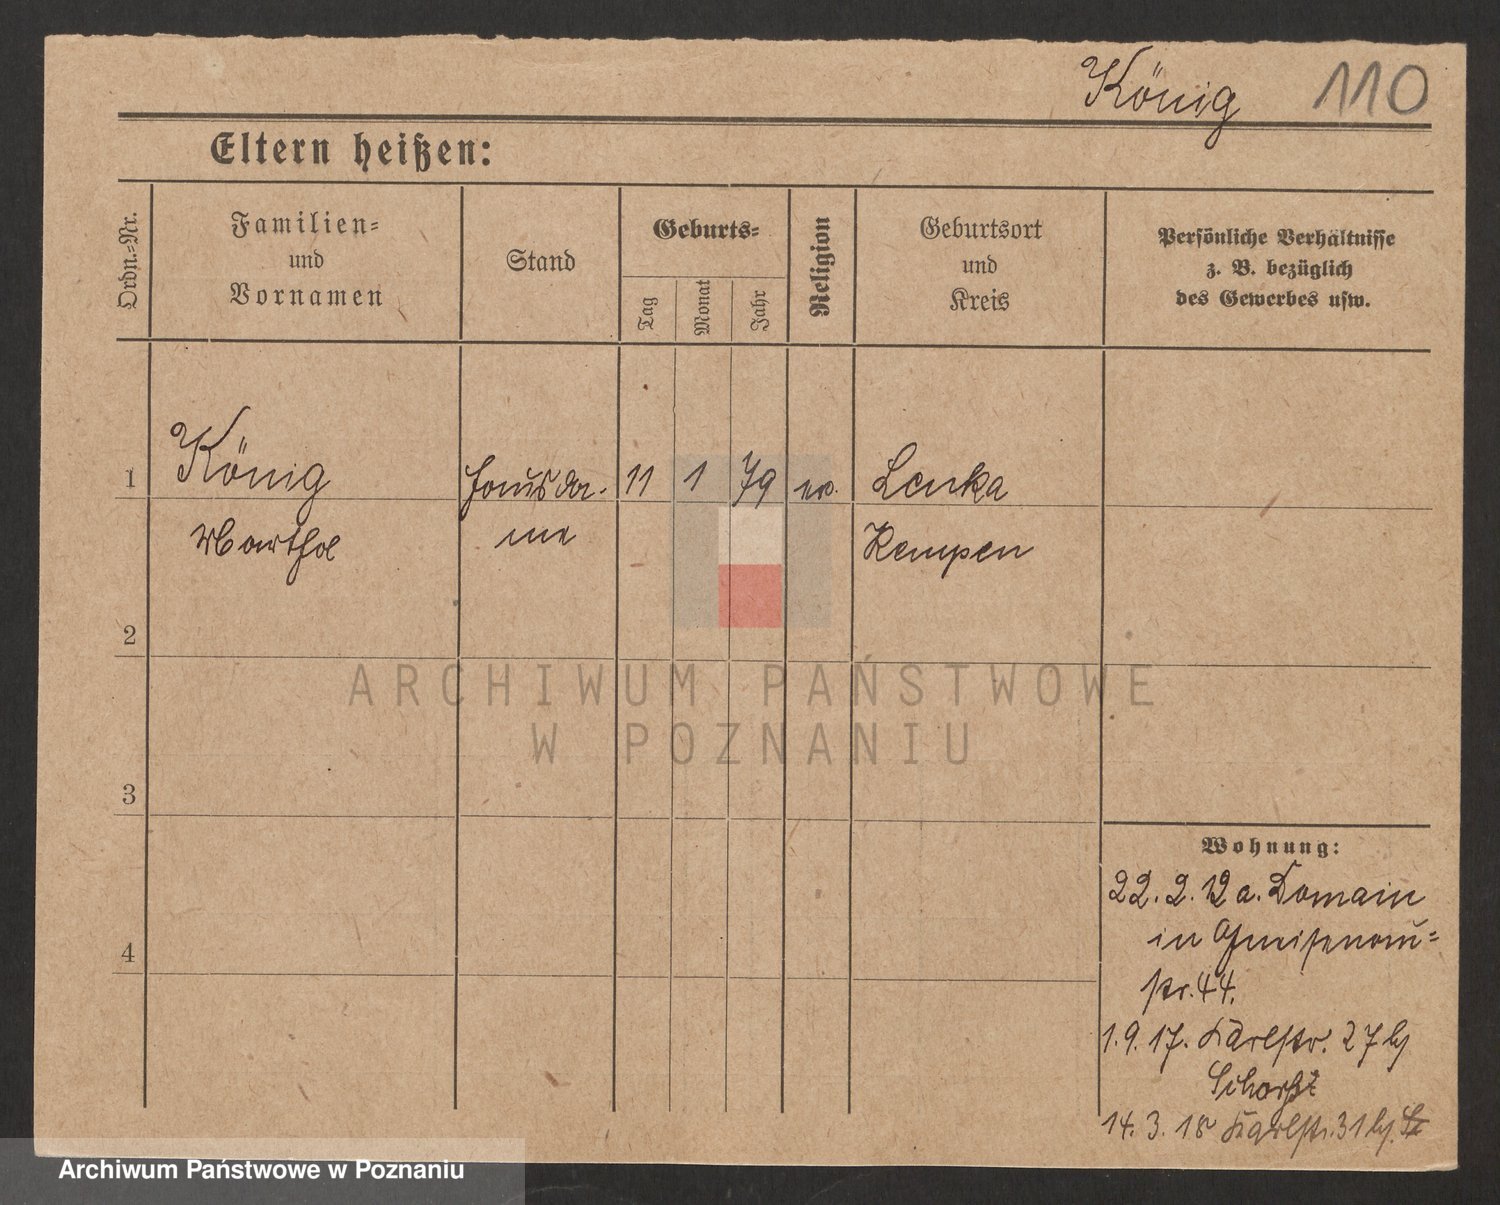 König 110
Eltern heißen:
Ordn.-Nr.
Familien-
und
Vornamen
Stand
Geburts-
Tag
Monat
Jahr
Religion
Geburtsort
und
Kreis
Persönliche Verhältnisse
z. B. bezüglich
des Gewerbes usw.
1 König Hausda- 11 1 79 ev. Lenka
Martha me Kempen
2
ARCHIWUM PAŃSTWOWE
W POZNANIU
3
Wohnung:
22. 2. 12 a. Domain
in Gneisenau-
str. 44.
4
1. 9. 17. Karlstr. 27 bj
14. 3. 18 Karlstr. 31 bj.
Archiwum Państwowe w Poznaniu